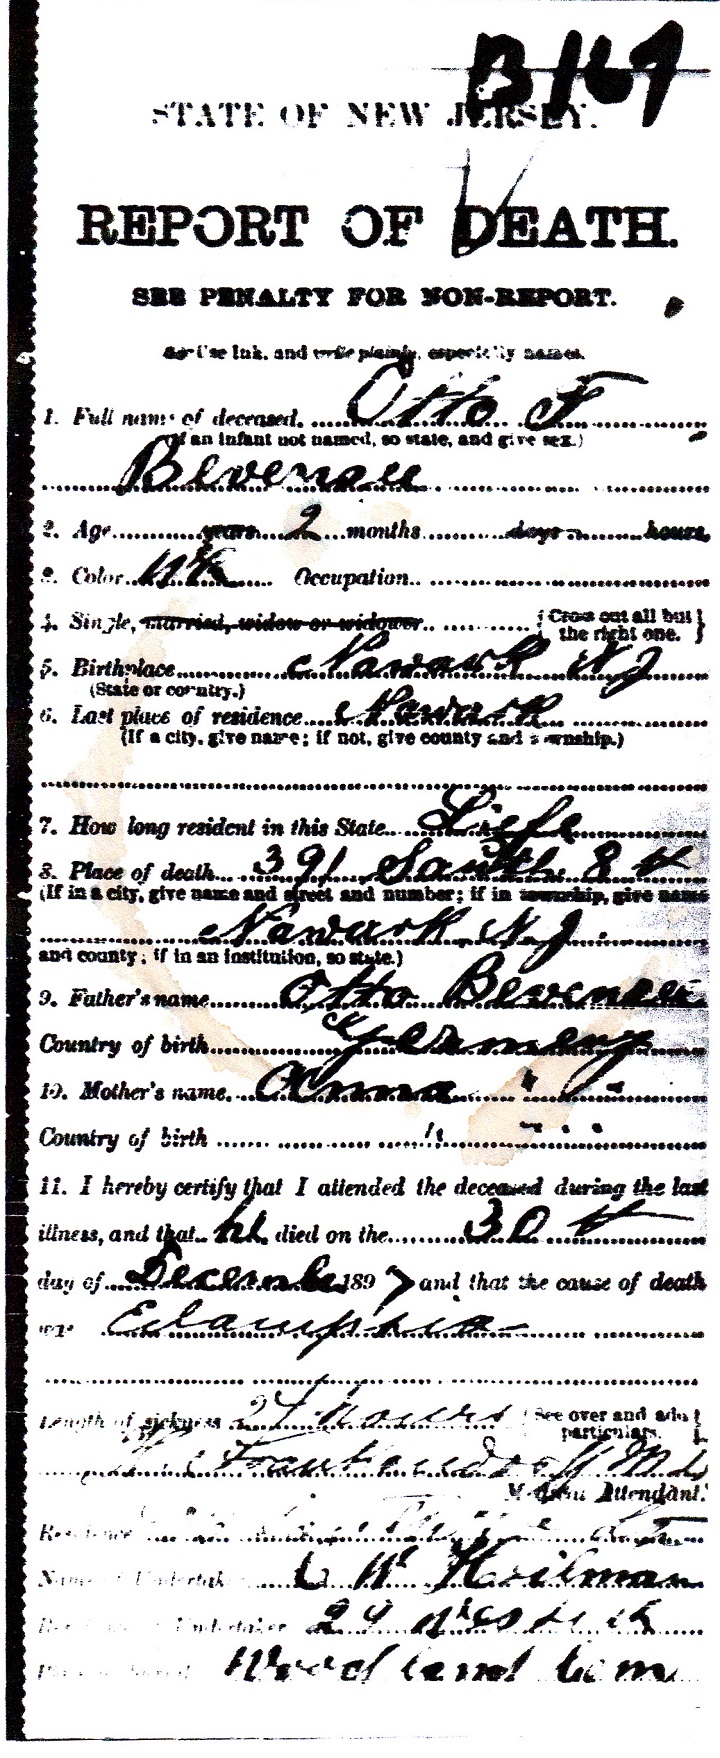 B 169
STATE OF NEW JERSEY.
REPORT OF DEATH.
SEE PENALTY FOR NON-REPORT.
Use Ink, and write plainly, especially names.
1. Full name of deceased. Otto F
(If an infant not named, so state, and give sex.)
Bevensee
2. Age years 2 months days hours
3. Color Wh Occupation
4. Single, married, widow or widower. {Cross out all but
the right one.}
5. Birthplace Newark N J
(State or country.)
6. Last place of residence Newark
(If a city, give name; if not, give county and township.)
7. How long resident in this State Life
8. Place of death 391 South 8 th
(If in a city, give name and street and number; if in township, give name
Newark N. J.
and county; if in an institution, so state.)
9. Father's name Otto Bevensee
Country of birth Germany
10. Mother's name. Anna " "
Country of birth " "
11. I hereby certify that I attended the deceased during the last
illness, and that he died on the 30 th
day of December 1897 and that the cause of death
was Eclampsia
Length of sickness 24 hours {See over and add
particulars.}
M D
Medical Attendant.
Residence
Name of Undertaker C W Heilman
Residence of Undertaker 29
Place of Burial Woodland Cem